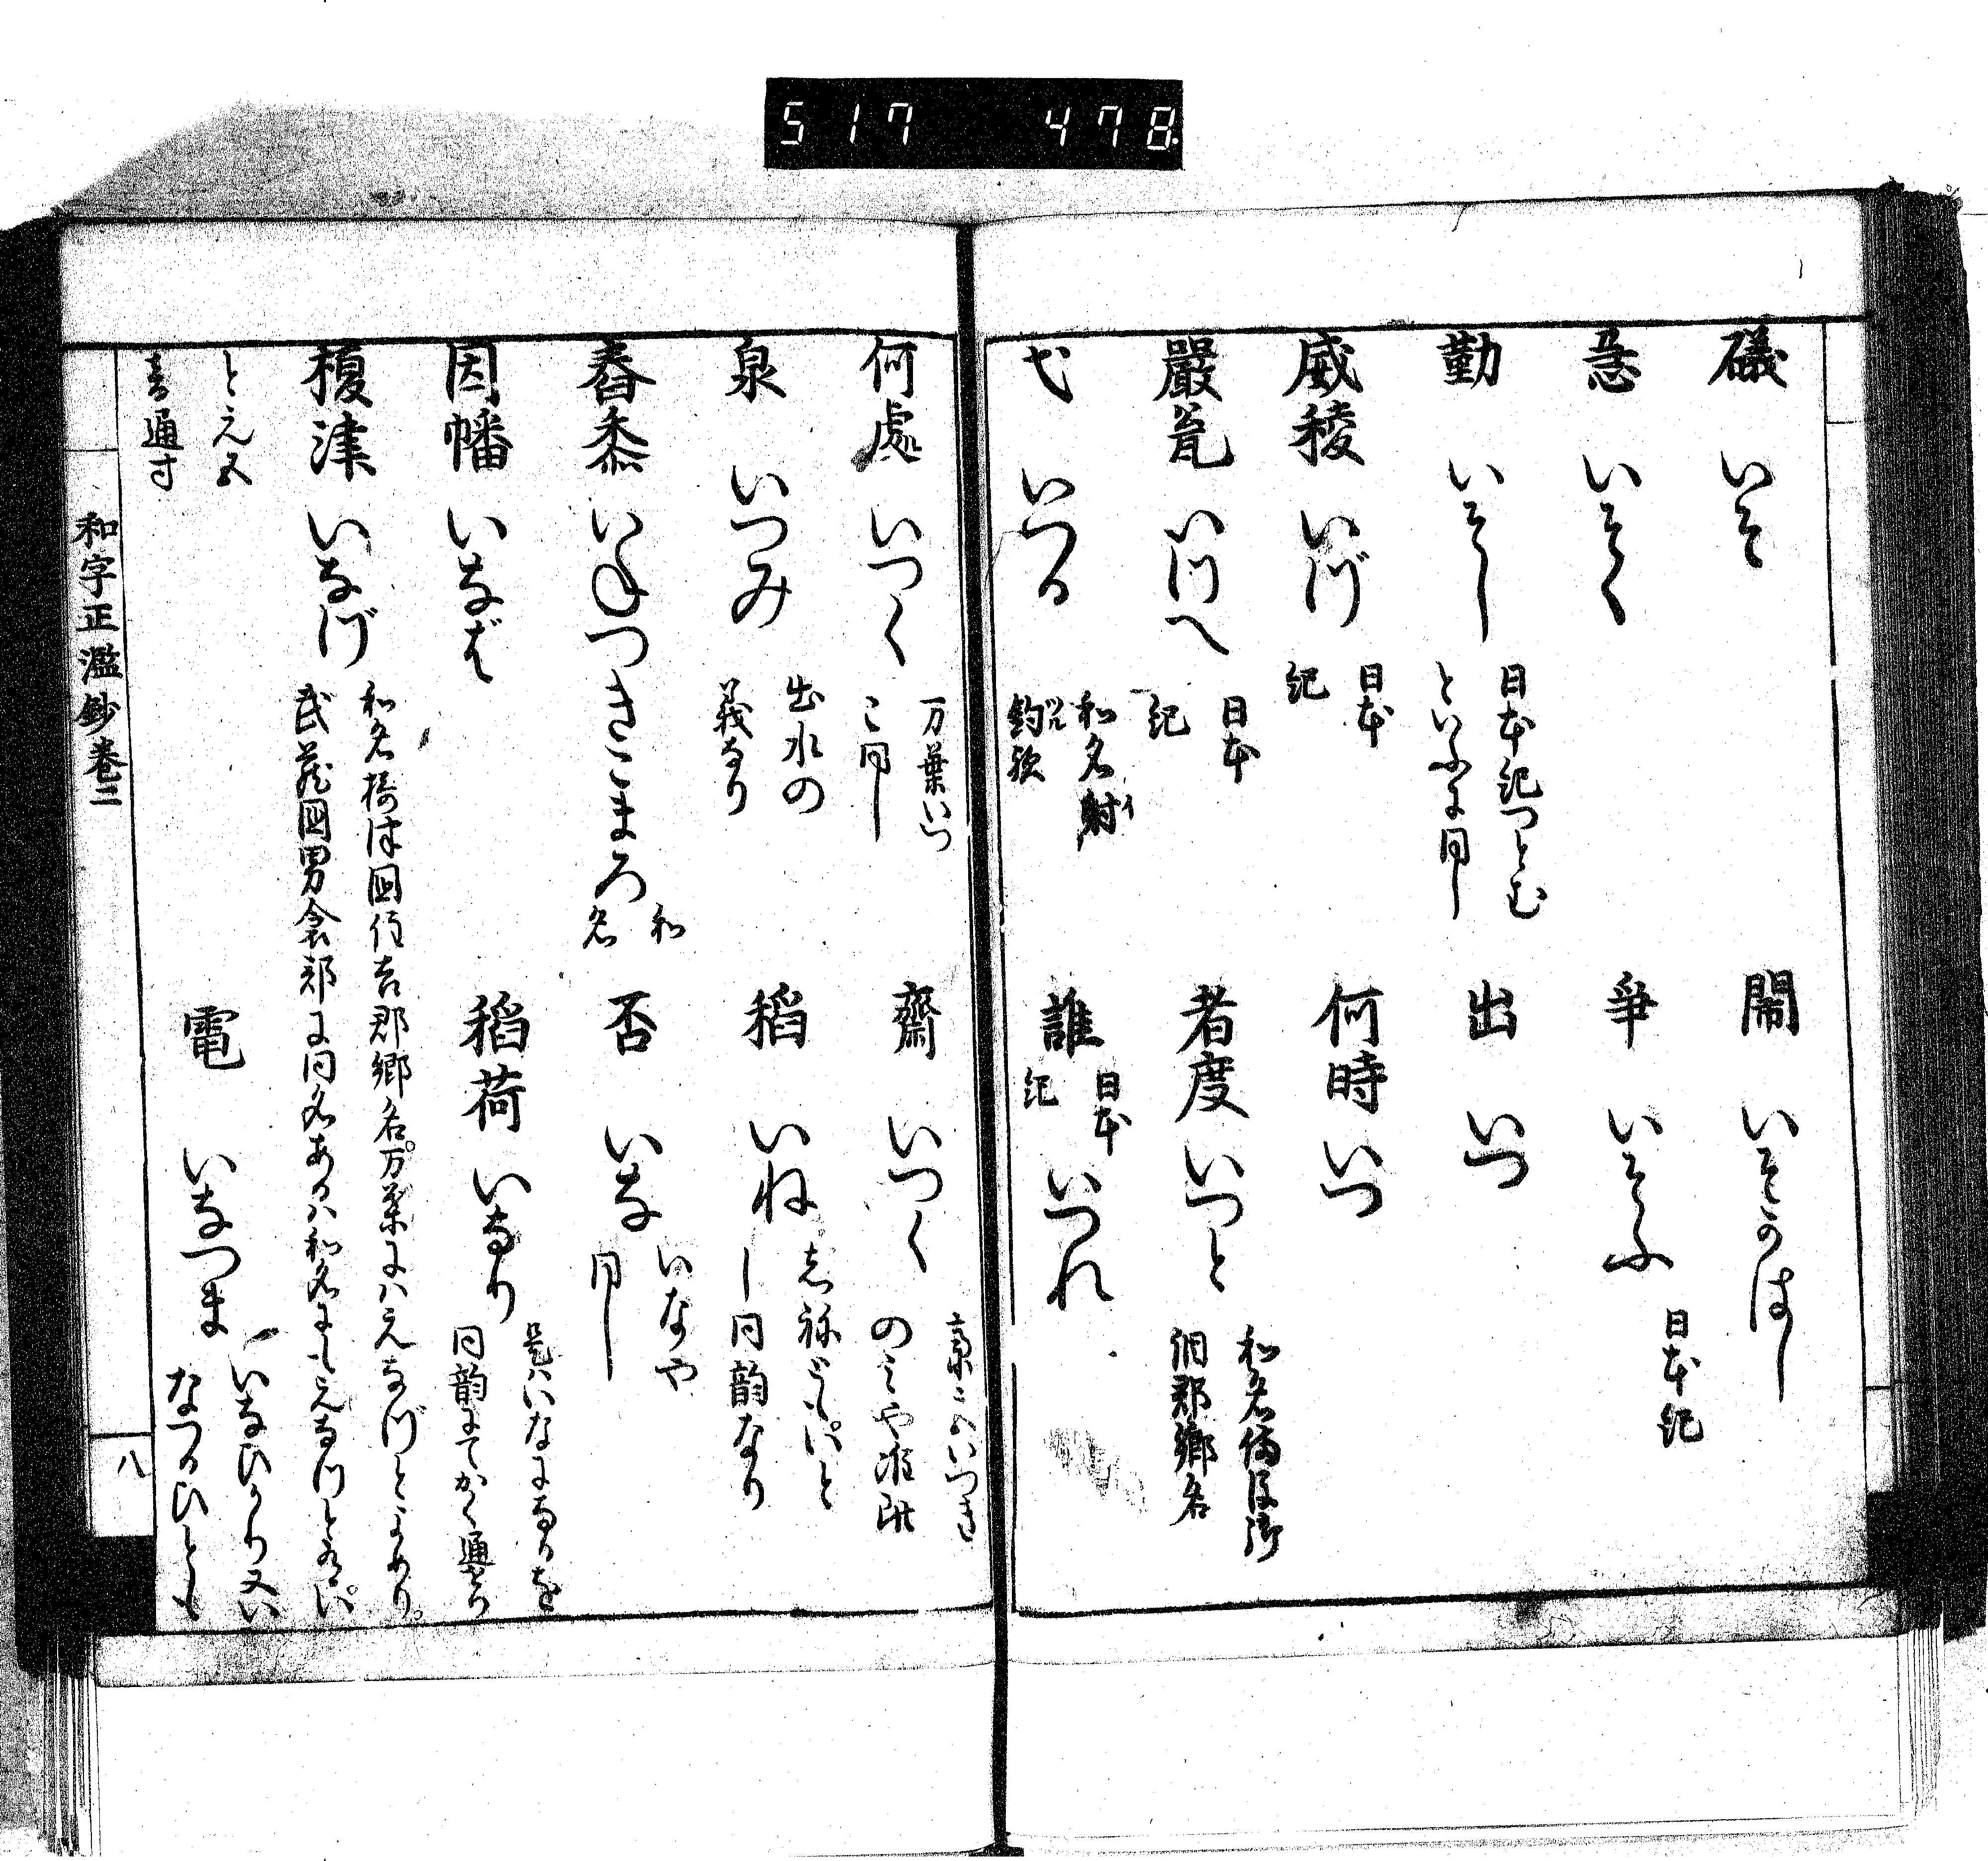 517 478.
礒 いそ
閙 いそかはし
急 いそく
爭 いそふ 日本紀
勤 いそし 日本紀つとむ
といふに同し
出 いつ
威稜 いづ 日本
紀
何時 いつ
嚴瓮 いづへ 日本
紀
者度 いつと 和名備後御
調郡郷名
弋 いつる 和名射イ
釣ツル歟
誰 日本
紀 いつれ
何處 いつく 万葉いつ
こ同し
齋 いつく
のみや准此
泉 いつみ 出水の
義なり
稻 いね 志祢ともいへと
し同韻なり
舂黍 いねつきこまろ 和
名
否 いな いなや
同し
因幡 いなば
稻荷 いなり 是はいなになるを
同韻にてかく通せり
榎津 いなづ 和名攝津國住吉郡郷名。万葉にはえなづとよめり。
武藏國男衾郡に同名あるは和名にもえなつとあれは
とえ五
音通す
電 いなつま いなひかり又い
なつるひとも
和字正濫鈔卷二
八